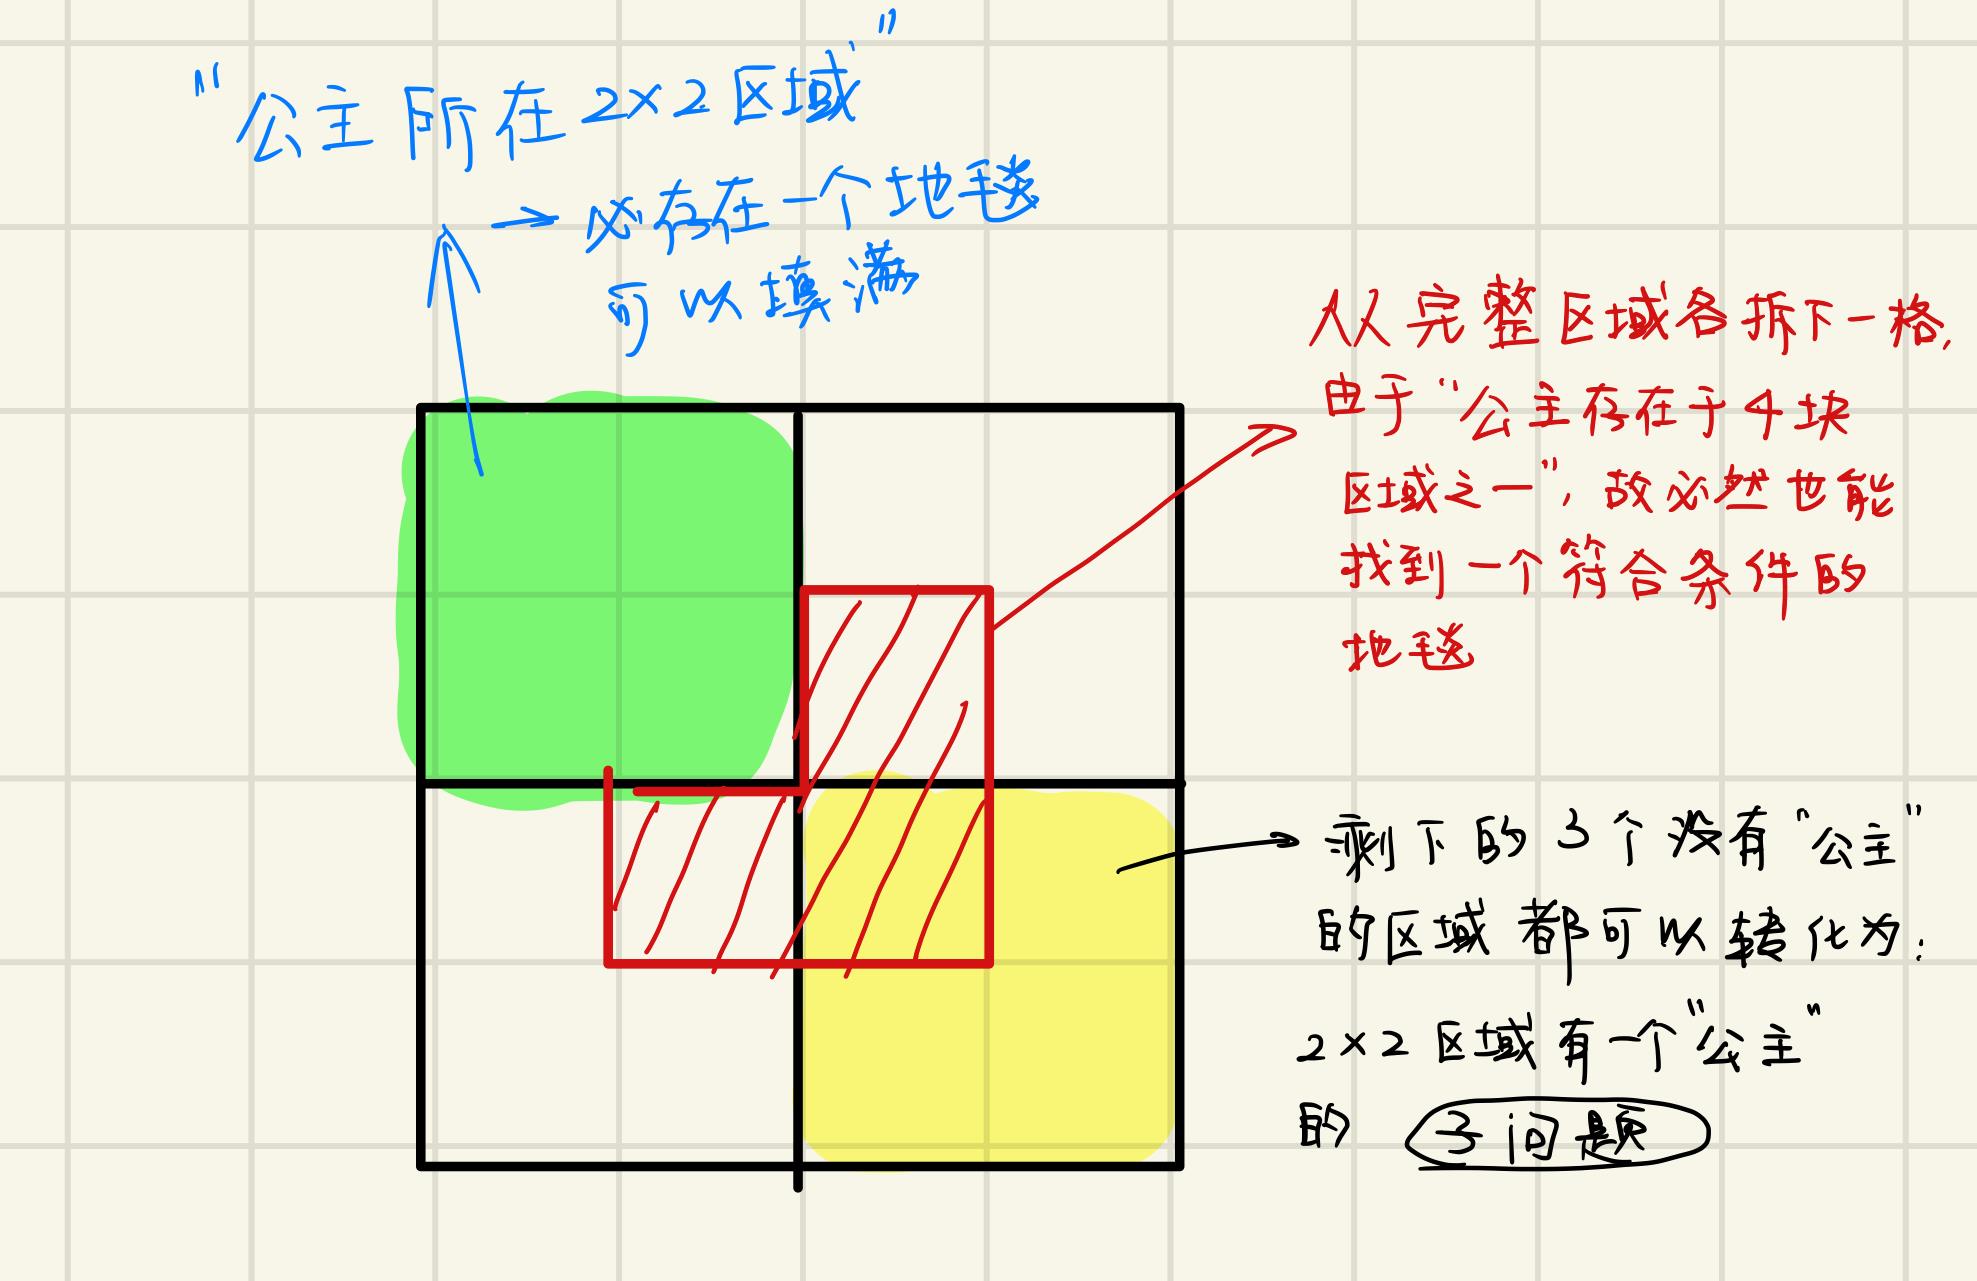 “公主所在2×2区域”
→ 必存在一个地毯
可以填满
从完整区域各拆下一格,
由于“公主存在于4块
区域之一”, 故必然也能
找到一个符合条件的
地毯
剩下的3个没有“公主”
的区域都可以转化为:
2×2区域有一个“公主”
的 子问题